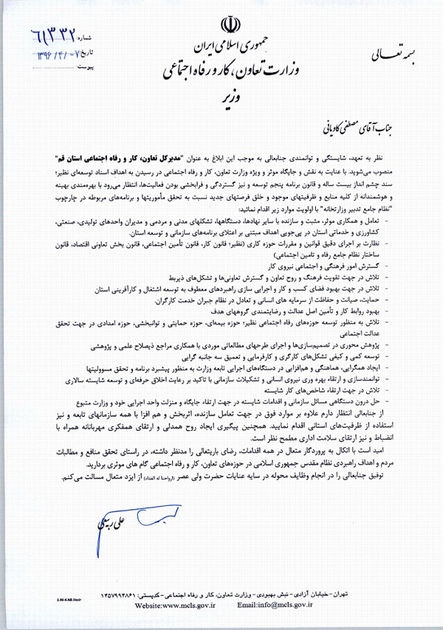 بسمه تعالی
جمهوری اسلامی ایران
وزارت تعاون، کار و رفاه اجتماعی
وزیر
شماره
تاریخ
پیوست
جناب آقای مصطفی
نظر به تعهد، شایستگی و توانمندی جنابعالی به موجب این ابلاغ به عنوان "مدیرکل تعاون، کار و رفاه اجتماعی استان قم"
منصوب می‌شوید. با عنایت به نقش و جایگاه موثر و ویژه وزارت تعاون، کار و رفاه اجتماعی در رسیدن به اهداف اسناد توسعه‌ای نظیر؛
سند چشم انداز بیست ساله و قانون برنامه پنجم توسعه و نیز گستردگی و فرابخشی بودن فعالیت‌ها، انتظار می‌رود با بهره‌مندی بهینه
و هوشمندانه از کلیه منابع و ظرفیتهای موجود و خلق فرصتهای جدید نسبت به تحقق مأموریتها و برنامه‌های مربوطه در چارچوب
"نظام جامع تدبیر وزارتخانه" با اولویت موارد زیر اقدام نمائید:
- تعامل و همکاری موثر، مثبت و سازنده با سایر نهادها، دستگاهها، تشکلهای مدنی و مردمی و مدیران واحدهای تولیدی، صنعتی،
کشاورزی و خدماتی استان در پی‌جویی اهداف مبتنی بر اعتلای برنامه‌های سازمانی و توسعه استان.
- نظارت بر اجرای دقیق قوانین و مقررات حوزه کاری (نظیر؛ قانون کار، قانون تأمین اجتماعی، قانون بخش تعاونی اقتصاد، قانون
ساختار نظام جامع رفاه و تامین اجتماعی)
- گسترش امور فرهنگی و اجتماعی نیروی کار
- تلاش در جهت تقویت فرهنگ و روح تعاون و گسترش تعاونی‌ها و تشکل‌های ذیربط
- تلاش در جهت بهبود فضای کسب و کار و اجرایی سازی راهبردهای معطوف به توسعه اشتغال و کارآفرینی استان
- حمایت، صیانت و حفاظت از سرمایه های انسانی و تعادل در نظام جبران خدمت کارگران.
- بهبود روابط کار و تأمین اصل عدالت و رضایتمندی گروههای هدف
- تلاش به منظور توسعه حوزه‌های رفاه اجتماعی نظیر؛ حوزه بیمه‌ای، حوزه حمایتی و توانبخشی، حوزه امدادی در جهت تحقق
عدالت اجتماعی
- پژوهش محوری در تصمیم‌سازی‌ها و اجرای طرحهای مطالعاتی موردی با همکاری مراجع ذیصلاح علمی و پژوهشی
- توسعه کمی و کیفی تشکل‌های کارگری و کارفرمایی و تعمیق سه جانبه گرایی
- ایجاد همگرایی، هماهنگی و هم‌افزایی در دستگاه‌های اجرایی تابعه وزارت به منظور پیشبرد برنامه و تحقق مسوولیتها
- توانمندسازی و ارتقاء بهره وری نیروی انسانی و تشکیلات سازمانی با تاکید بر رعایت اخلاق حرفه‌ای و توسعه شایسته سالاری
- تلاش در جهت ارتقاء شاخص‌های کار شایسته
- حل درون دستگاهی مسائل سازمانی و اقدامات شایسته در جهت ارتقاء جایگاه و منزلت واحد اجرایی خود و وزارت متبوع
از جنابعالی انتظار دارم علاوه بر موارد فوق در جهت تعامل سازنده، اثربخش و هم افزا با همه سازمانهای تابعه و نیز
استفاده از ظرفیت‌های استانی اقدام نمایید. همچنین پیگیری ایجاد روح همدلی و ارتقای همفکری مهربانانه همراه با
انضباط و نیز ارتقای سلامت اداری مطمح نظر است.
امید است با اتکال به پروردگار متعال در همه اقدامات، رضای باریتعالی را مدنظر داشته، در راستای تحقق منافع و مطالبات
مردم و اهداف راهبردی نظام مقدس جمهوری اسلامی در حوزه‌های تعاون، کار و رفاه اجتماعی گام های موثری بردارید.
توفیق جنابعالی را در انجام وظایف محوله در سایه عنایات حضرت ولی عصر از ایزد متعال مسألت می‌کنم.
علی ربیعی
تهران-خیابان آزادی- نبش بهبودی- وزارت تعاون، کار و رفاه اجتماعی- کدپستی: ۱۴۵۷۹۹۳۸۶۱
Website:www.mcls.gov.ir Email:info@mcls.gov.ir